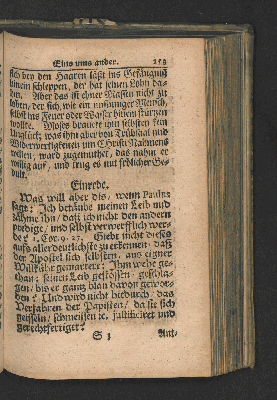 Eins ums ander. 159
sich bey den Haaren läßt ins Gefängnuß
hinein schleppen, der hat seinen Lohn da-
hin. Aber das ist ehner Massen nicht zu
loben, der sich, wie ein unsinniger Mensch,
selbst ins Feuer oder Wasser hinein stürtzen
wollte. Moses brauete ihm selbsten kein
Unglück; was ihm aber von Trübsaal und
Widerwertigkeiten um Christi Nahmens
willen, ward zugemuthet, das nahm er
willig auf, und trug es mit frölicher Ge-
dult.
Einrede.
Was will aber dis, wenn Paulus
sagt: Ich betäube meinen Leib und
zähme ihn, daß ich nicht den andern
predige, und selbst verwerfflich wer-
de? 1. Cor. 9. 27. Giebt nicht dieses
aufs allerdeutlichste zu erkennen, daß
der Apostel sich selbsten, aus eigner
Willkühr gemartert: Ihm wehe ge-
than: seinen Leib gestossen: geschla-
gen, bis er gantz blau davon gewor-
den? Und wird nicht hiedurch, das
Verfahren der Papisten, da sie sich
geisseln, schmeissen ꝛc. justificiret und
gerechtfertiget?
S 3 Ant-